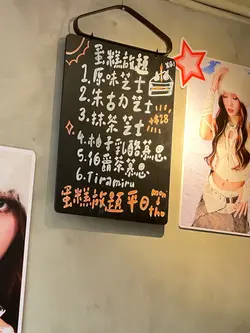 蛋糕放題
1.原味芝士
2.朱古力芝士
3.抹茶芝士 +$18
4.柚子乳酪慕思
5.伯爵茶慕思
6.Tiramisu
蛋糕放題平日 mon
thu